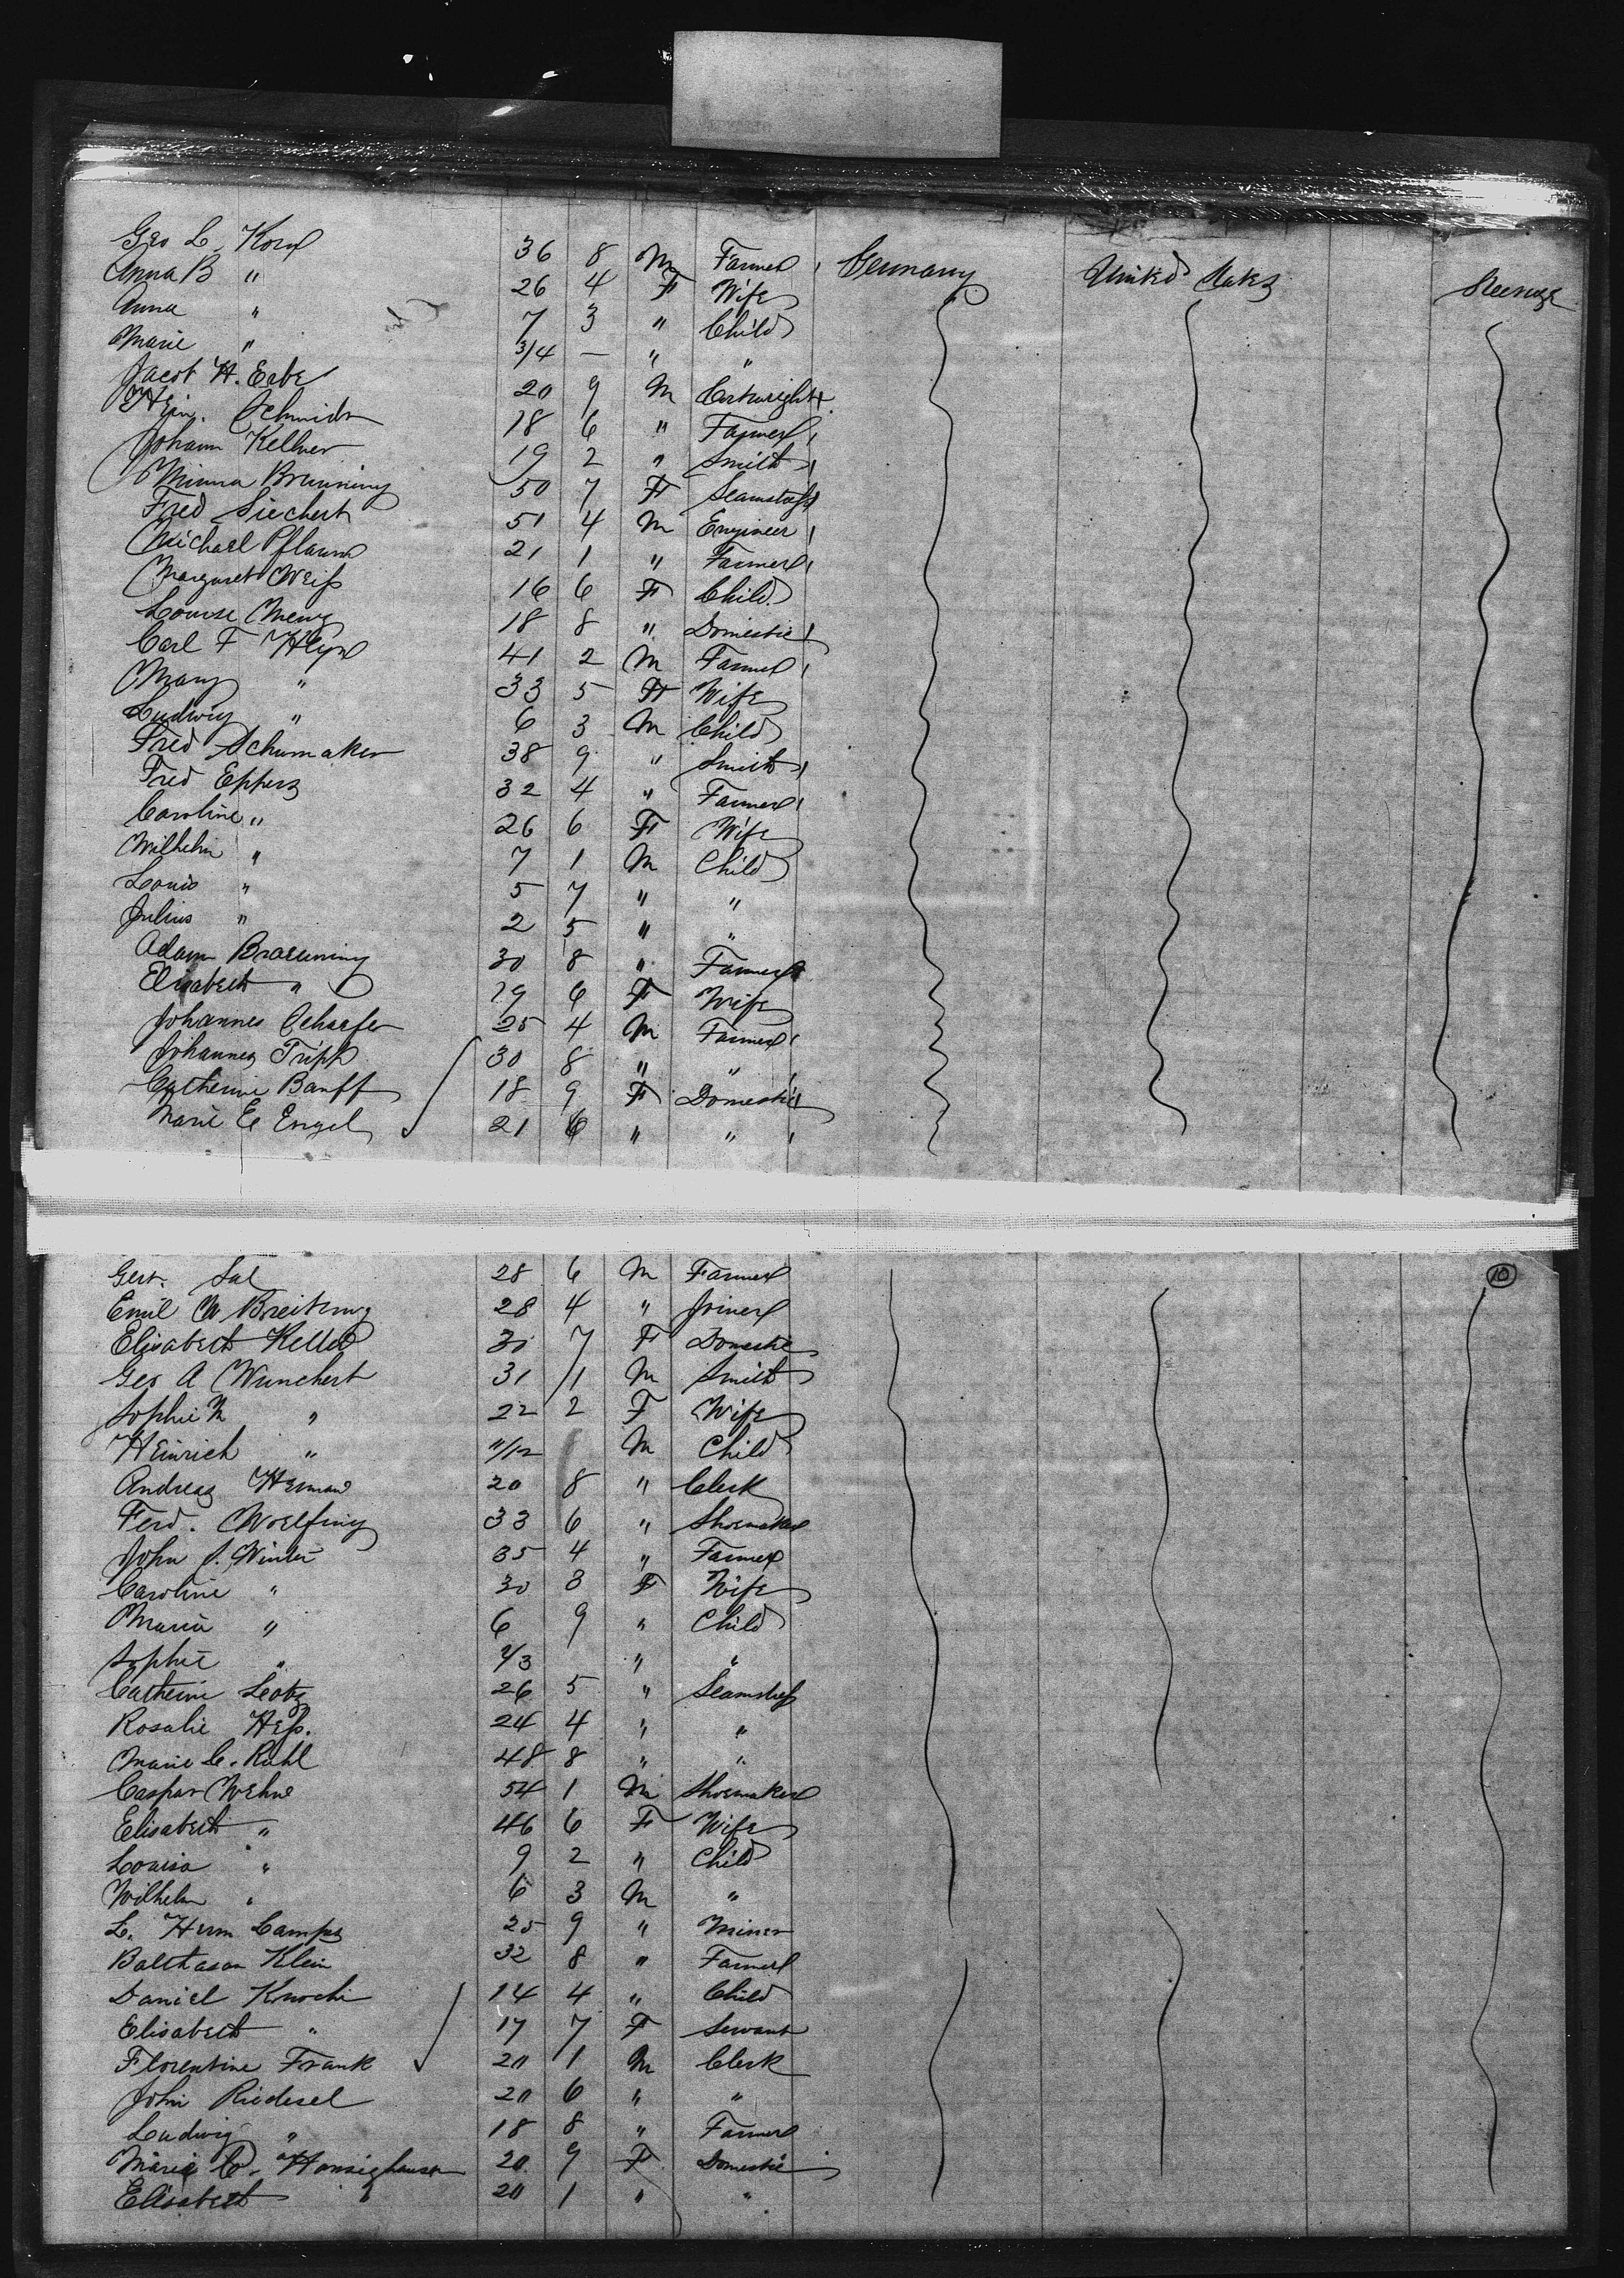 Geo L. Korn 36 8 M Farmer Germany United States Steerage
Anna B " 26 4 F Wife
Anna " 7 3 " Child
Marie " 3/4 — " "
Jacob H. Erbe 20 9 M Cartwright
Hein. Schmidt 18 6 " Farmer
Johann Kellner 19 2 " Smith
Minna Brunning 50 7 F Seamstress
Fred Siechert 51 4 M Engineer
Michael Pflaum 21 1 " Farmer
Margaret Weiss 16 6 F Child
Louise Menz 18 8 " Domestic
Carl F Heyn 41 2 M Farmer
Mary " 33 5 F Wife
Ludwig " 6 3 M Child
Fred Schumaker 38 9 " Smith
Fred Eppers 32 4 " Farmer
Caroline " 26 6 F Wife
Wilhelm " 7 1 M Child
Louis " 5 7 " "
Julius " 2 5 " "
Adam Braeuning 30 8 " Farmer
Elisabeth " 29 6 F Wife
Johannes Schaefer 25 4 M Farmer
Johannes Triph 30 8 " "
Catherine Banff 18 9 F Domestic
Marie E Engel 21 6 " "
10
Gert. Sal 28 6 M Farmer
Emil W Breitung 28 4 " Joiner
Elisabeth Keller 30 7 F Domestic
Geo A Wunchert 31 1 M Smith
Sophie M " 22 2 F Wife
Heinrich " 11/12 M Child
Andreas Herman 20 8 " Clerk
Ferd. Woelfing 33 6 " Shoemaker
John J. Winter 35 4 " Farmer
Caroline " 30 3 F Wife
Maria " 6 9 " Child
Sophie " 2/3 " "
Catherine Leotz 26 5 " Seamstress
Rosalie Hess. 24 4 " "
Marie C. Ruhl 48 8 " "
Caspar Wehne 54 1 M Shoemaker
Elisabeth " 46 6 F Wife
Louisa " 9 2 " Child
Wilhelm " 6 3 M "
L. Herm Lampe 25 9 " Miner
Balthasar Klein 32 8 " Farmer
Daniel Knoche 14 4 " Child
Elisabeth " 17 7 F Servant
Florentine Frank 20 1 M Clerk
John Riedesel 20 6 " "
Ludwig " 18 8 " Farmer
Marie C. Honsighausen 20 9 F Domestic
Elisabeth " 20 1 " "